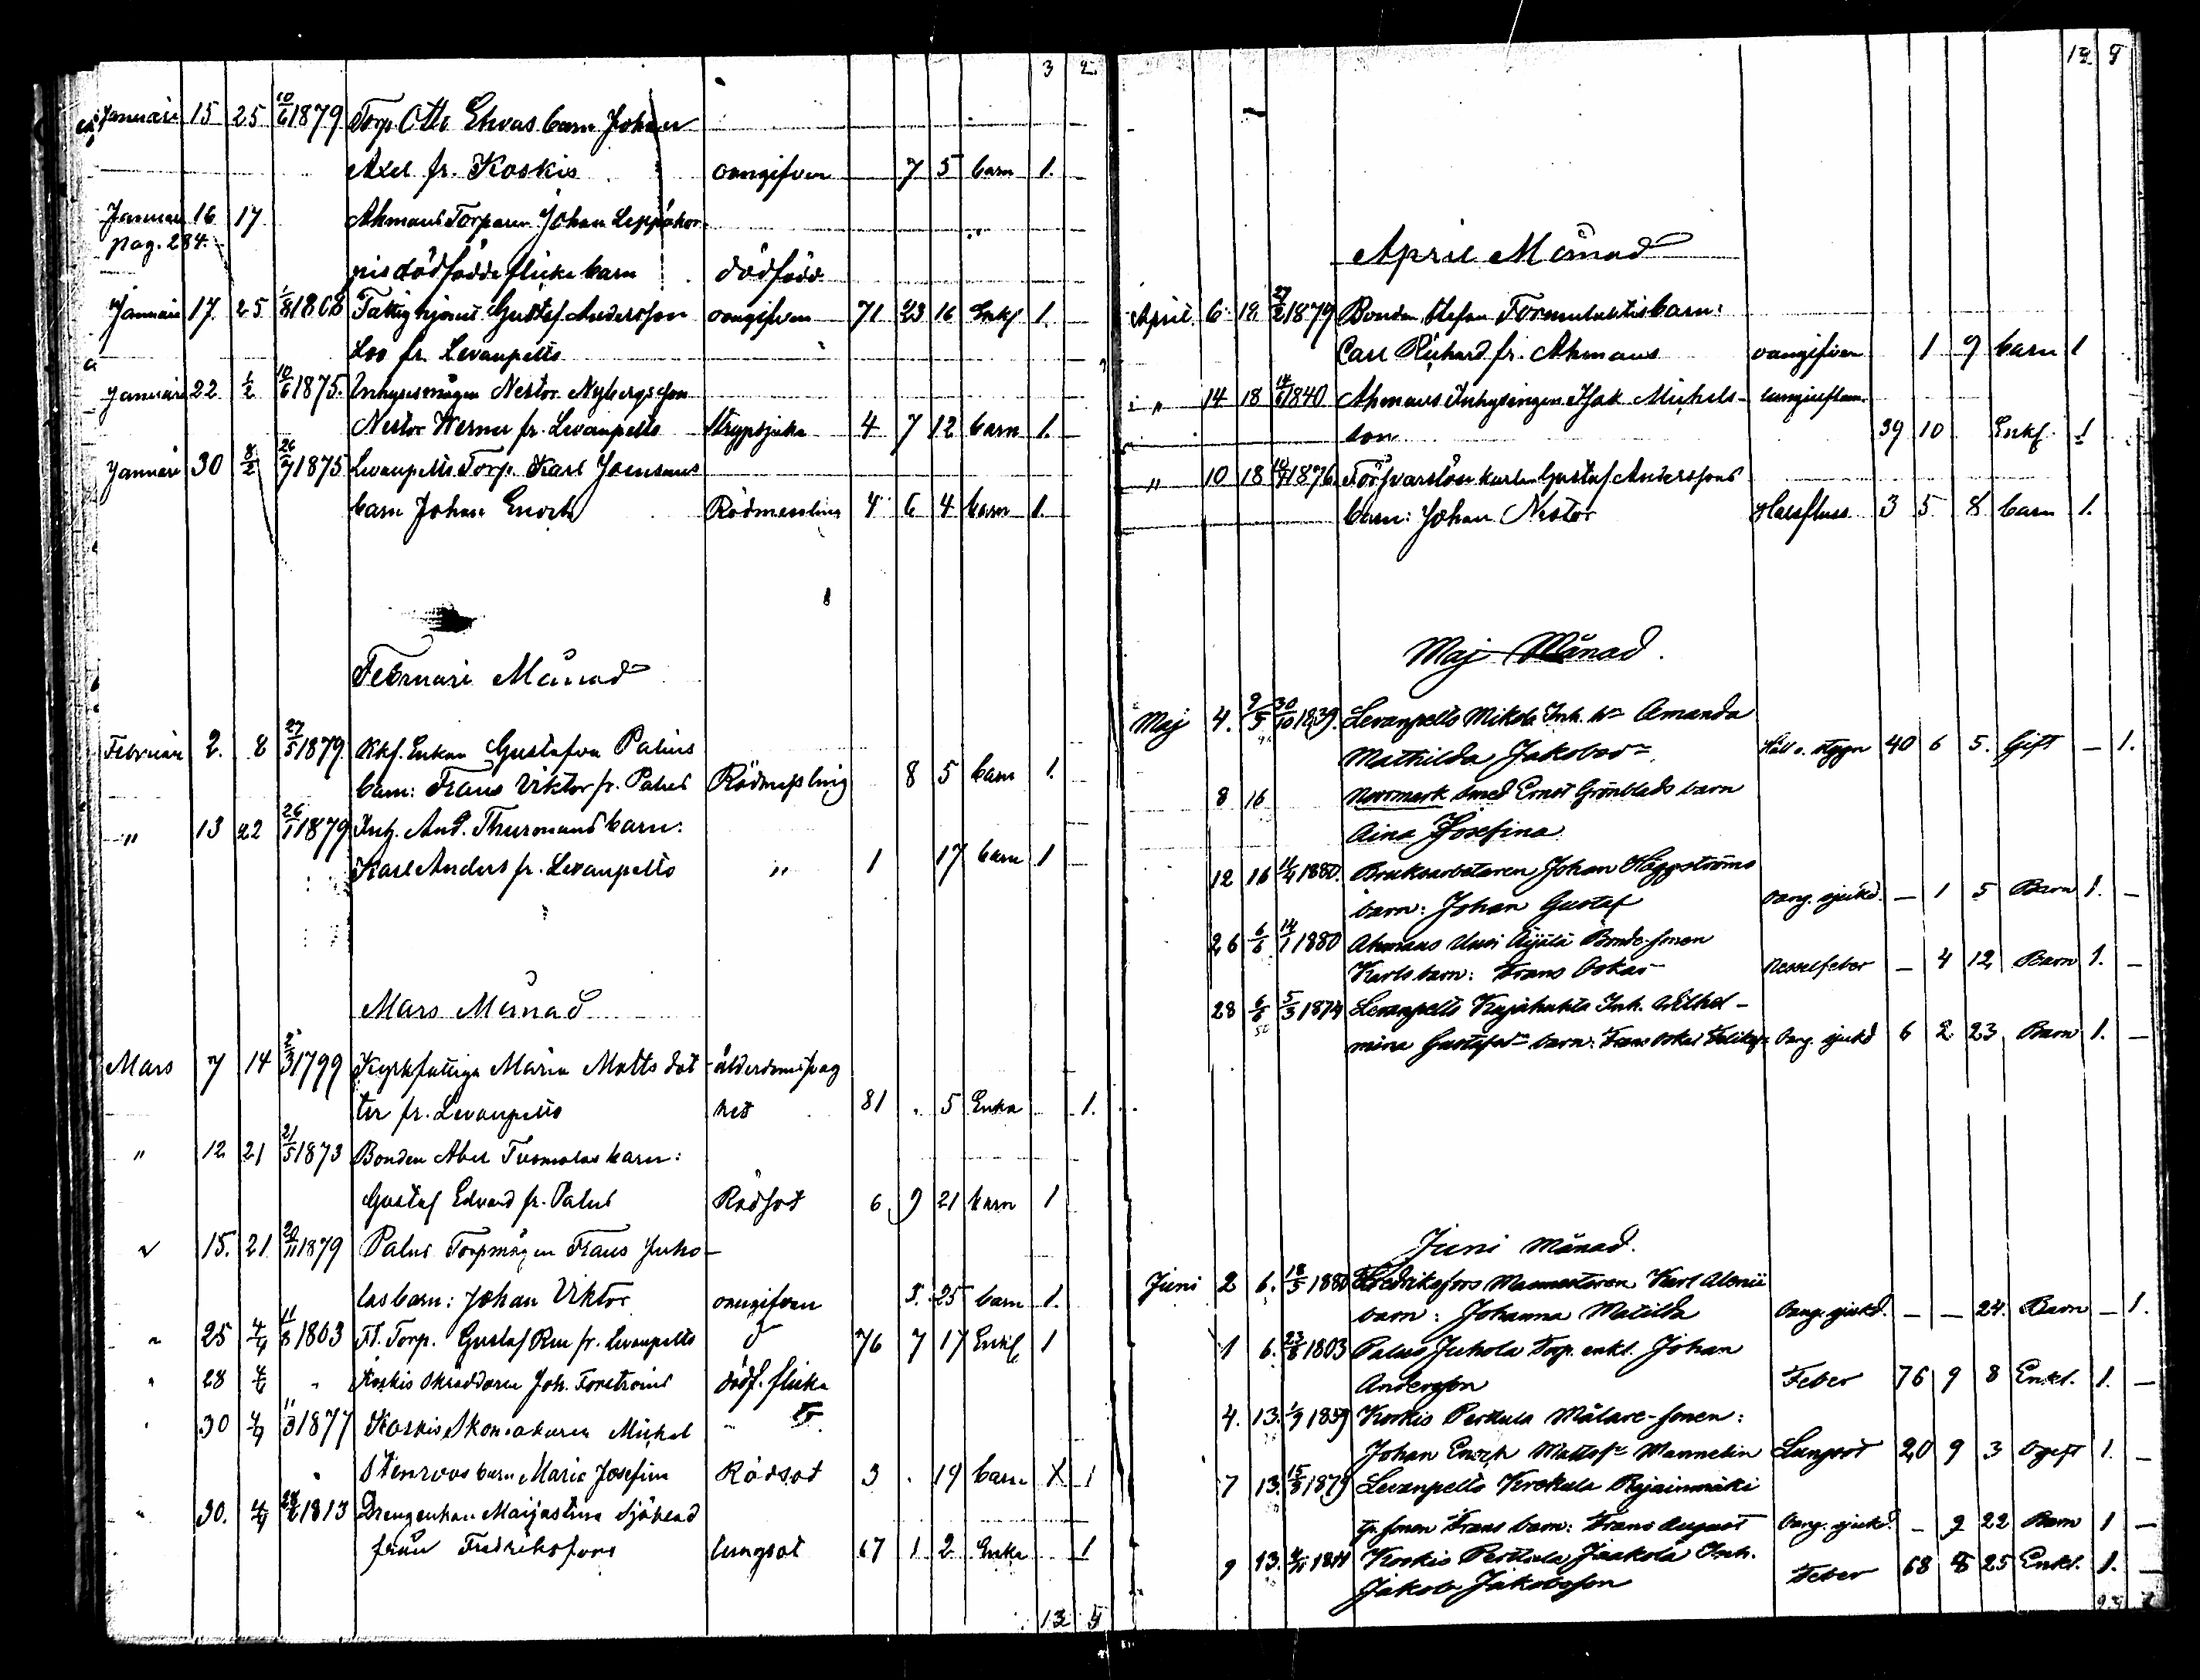 3 2
Januari 15 25 10/6 1879 Torp. Otto Elwas barn Johan
Axel fr. Koskis oangifven 7 5 barn 1. —
Januari 16 17 Ahmaus Torparen Johan Leppäkor-
pag. 284.
pis dödfödde flicke barn dödfödd
Januari 17. 25 1/8 1808 Fattighjonet Gustaf Andersson oangifven 71 23 16 Enkl. 1. —
fr. Levanpelto
Januari 22 1/2 10/6 1875. Inhysesmågen Nestor Nybergs son
Nestor Werner fr. Levanpelto Strypsjuka 4 7 12 barn 1. —
Januari 30 8/2 26/7 1875 Levanpelto Torp. Karl Joensuus
barn Johan Enoch Rödmessling 4 6 4 barn 1.
Februari Månad
Februari 2. 8 27/5 1879. Enkan Gustafva Palus
barn: Frans Viktor fr. Palus Rödmessling 8 5 barn 1. —
" 13 22 26/1 1879 Inh. And. Thurmans barn:
Karl Anders fr. Levanpelto " 1 17 barn 1 —
Mars Månad
Mars 7 14 2/3 1799 Kyrkfattiga Maria Matts dot- ålderdomsswag
ter fr. Levanpelto het 81 . 5 Enka 1.
" 12 21 21/5 1873 Bonden Abel Tuomolas barn:
Gustaf Edvard fr. Palus Rödsot 6 9 21 barn 1
" 15. 21 20/11 1879 Palus Torpmågen Frans Juho-
las barn: Johan Viktor oangifven 3. 25 barn 1.
" 25 4/4 11/8 1803 Torp. Gustaf fr. Levanpelto 76 7 17 Enkl. 1
" 28 4/4 " Koskis Skräddaren Joh. Forströms dödf. flicka
" 30 4/4 11/3 1877 Koskis Skomakaren Michel
Stenroos barn Maria Josefina Rödsot 3 . 19 barn X 1
" 30. 4/4 28/2 1813 Drengenkan Maijastina Sjöblad
från Fredriksfors lungsot 67 1 2 Enka 1
13 5
12 5
April Månad
April 6 18 27/2 1879 Bonden Stefan barn:
Carl Richard fr. Ahmaus oangifven 1 9 barn 1
" 14 18 14/6 1840 Ahmaus Inhysingen Isak Michels-
son 39 10 Enkl. 1
" 10 18 10/11 1876. Förswarslöse karlen Gustaf Anderssons
barn: Johan Nestor Halsfluss 3 5 8 barn 1.
Maj Månad.
Maj 4. 9/5 30/10 1839. Levanpelto Mikola Inh. hu Amanda
Mathilda Jakobsdr. Håll o. stygn 40 6 5. Gift — 1.
8 16 Norrmark smed Ernst Grönblads barn
Aina Josefina
12 16 11/4 1880. Bruksarbetaren Johan Häggströms
barn: Johan Gustaf oang. sjukd. — 1 5 Barn 1. —
26 6/6 14/1 1880 Ahmaus Uusi Äijälä Bonde-sonen
Karls barn: Frans Oskar Nesselfeber — 4 12 Barn 1. —
28 6/6 5/3 1874 Levanpelto Inh. Wilhel-
mina Gustafsdr. barn: Frans Oskar Oang. sjukd 6 2 23 Barn 1. —
Juni Månad.
Juni 2 6. 18/5 1880 Fredriksfors Karl
barn: Johanna Matilda Oang. sjukd. — — 24. Barn — 1.
1 6. 23/8 1803 Palus Juhola Torp. enkl. Johan
Andersson Feber 76 9 8 Enkl. 1. —
4. 13. 1/9 1859 Koskis Perttula Målare-sonen:
Johan Enoch Mattss. Mannelin Lungsot 20 9 3 Ogift 1. —
7 13. 15/8 1879 Levanpelto Krekula Rajainmäki
Tp. sonen Frans barn: Frans August Oang. sjukd. — 9 22 Barn 1 —
9 13. 4/11 1811 Koskis Perttula Jaakola Inh.
Jakob Jakobsson Feber 68 8 25 Enkl. 1. —